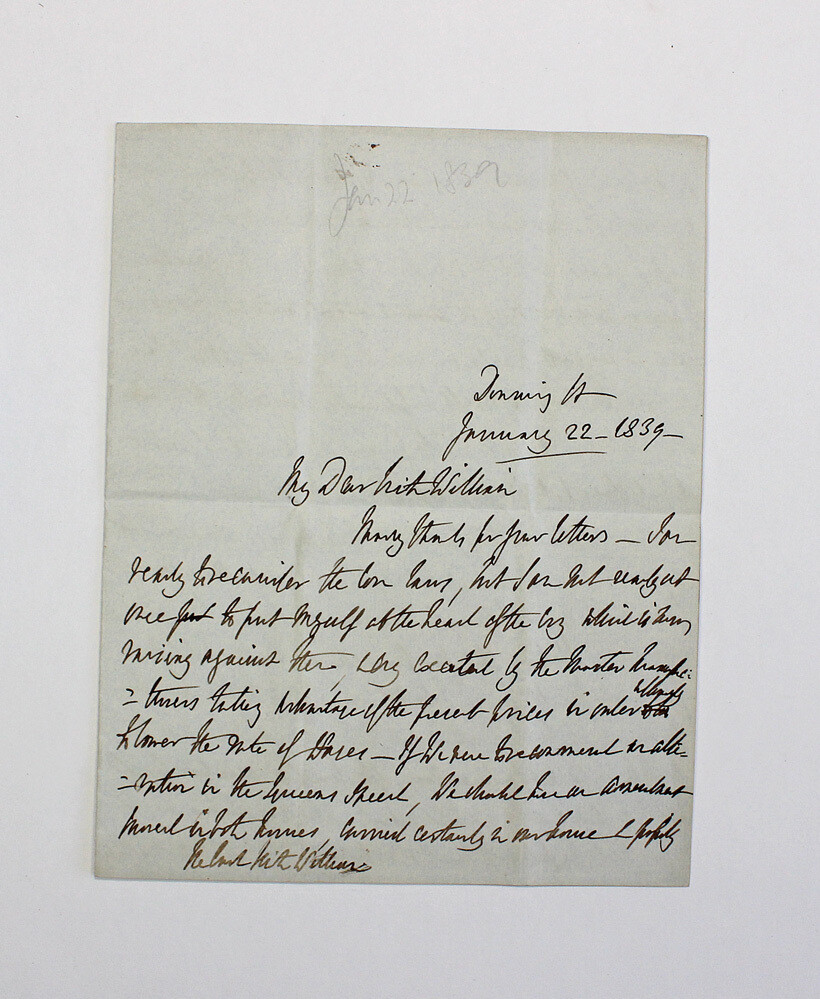 Jan 22 1839
Downing St
January 22 - 1839 -
My Dear Fitzwilliam
Many thanks for your letters - I am
ready to reconsider the corn laws, but I am not ready at
once to put myself at the head of the cry which is now
raising against them, & being excited by the Master Manufac:
= turers taking advantage of the present prices in order
to lower the rate of Wages - If We were to recommend an alte=
= ration in the Queens Speech, We should have an amendment
moved in both houses, carried certainly in one house & possibly
The Earl Fitzwilliam